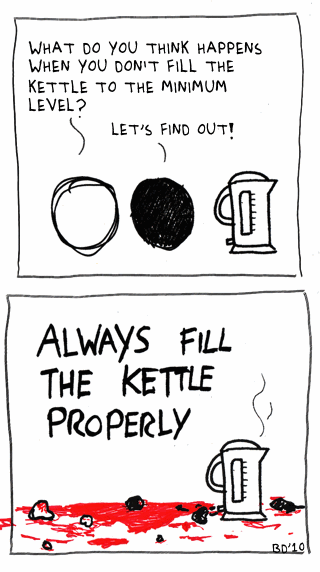 WHAT DO YOU THINK HAPPENS
WHEN YOU DON'T FILL THE
KETTLE TO THE MINIMUM
LEVEL?
LET'S FIND OUT!
ALWAYS FILL
THE KETTLE
PROPERLY
BD'10